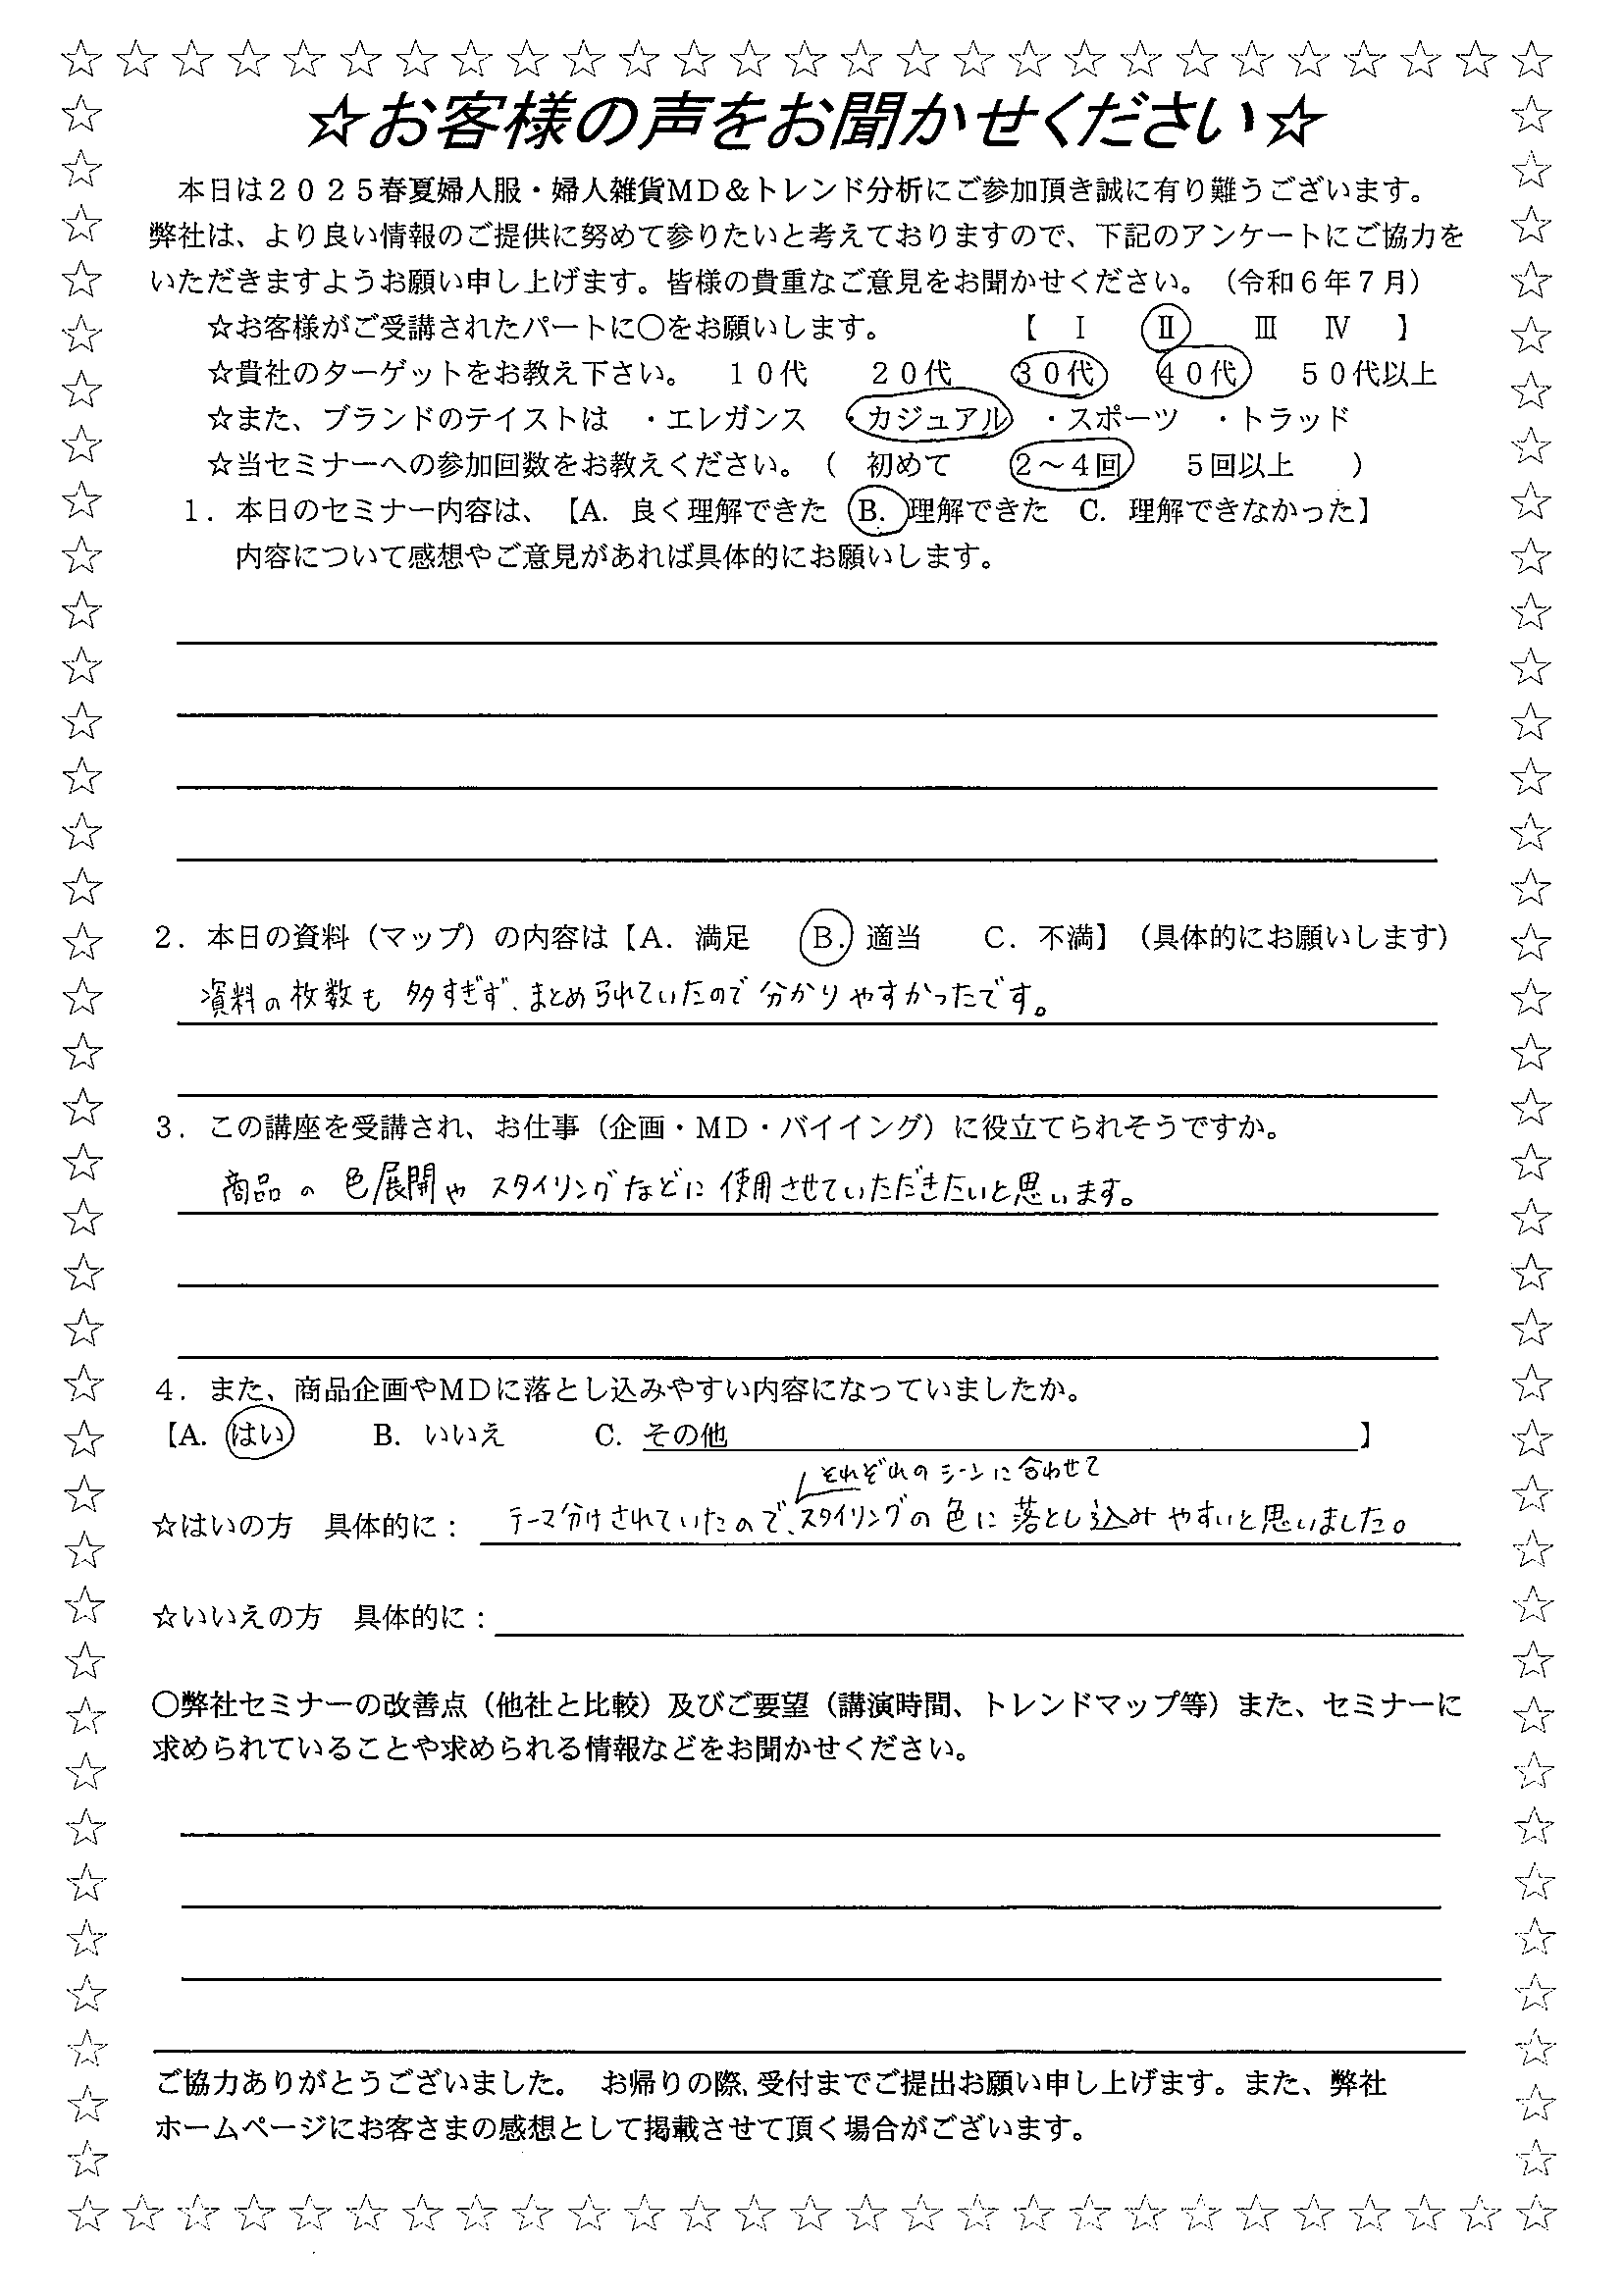 ☆お客様の声をお聞かせください☆
本日は２０２５春夏婦人服・婦人雑貨MD＆トレンド分析にご参加頂き誠に有り難うございます。
弊社は、より良い情報のご提供に努めて参りたいと考えておりますので、下記のアンケートにご協力を
いただきますようお願い申し上げます。皆様の貴重なご意見をお聞かせください。（令和６年７月）
☆お客様がご受講されたパートに〇をお願いします。　【　Ⅰ　Ⅱ　Ⅲ　Ⅳ　】
☆貴社のターゲットをお教え下さい。　１０代　２０代　３０代　４０代　５０代以上
☆また、ブランドのテイストは　・エレガンス　・カジュアル　・スポーツ　・トラッド
☆当セミナーへの参加回数をお教えください。（　初めて　２～４回　５回以上　）
１．本日のセミナー内容は、【A．良く理解できた　B．理解できた　C．理解できなかった】
内容について感想やご意見があれば具体的にお願いします。
２．本日の資料（マップ）の内容は【A．満足　B．適当　C．不満】（具体的にお願いします）
資料の枚数も多すぎず、まとめられていたので分かりやすかったです。
３．この講座を受講され、お仕事（企画・MD・バイイング）に役立てられそうですか。
商品の色展開やスタイリングなどに使用させていただきたいと思います。
４．また、商品企画やMDに落とし込みやすい内容になっていましたか。
【A．はい　B．いいえ　C．その他　】
それぞれのシーンに合わせて
☆はいの方　具体的に：　テーマ分けされていたので、スタイリングの色に落とし込みやすいと思いました。
☆いいえの方　具体的に：
〇弊社セミナーの改善点（他社と比較）及びご要望（講演時間、トレンドマップ等）また、セミナーに
求められていることや求められる情報などをお聞かせください。
ご協力ありがとうございました。　お帰りの際、受付までご提出お願い申し上げます。また、弊社
ホームページにお客さまの感想として掲載させて頂く場合がございます。